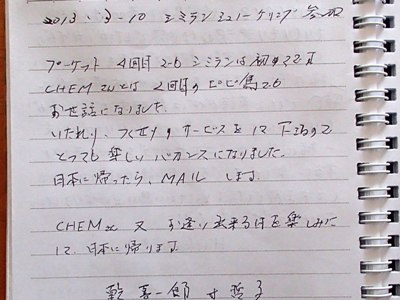 2013.3-10 シミランシュノーケリング 参加
プーケット 4回目でも シミランは初めてです
CHEMさんとは 2回目のピピ島でも
お世話になりました
いたれり、つくせりのサービスをして下さるので
とっても楽しいバカンスになりました。
日本に帰ったら、MAIL します。
CHEMさん 又 お逢い出来る日を楽しみに
して、日本に帰ります